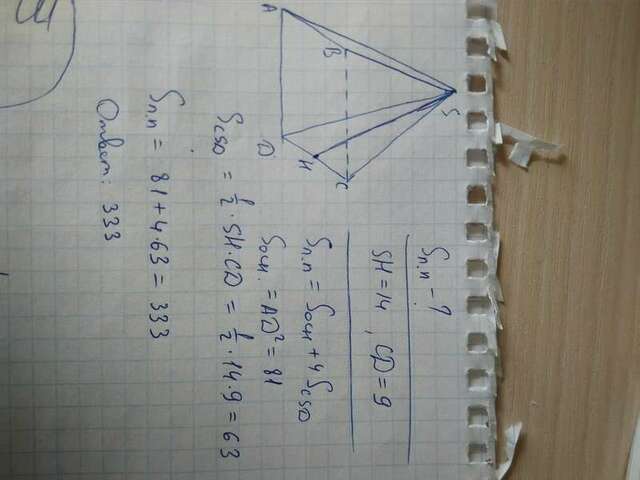 S
A
B
C
D
H
Sп.п - ?
SH = 14 , CD = 9
Sп.п = Sосн + 4 SCSD
Sосн. = AD² = 81
SCSD = 1/2 · SH · CD = 1/2 · 14 · 9 = 63
Sп.п = 81 + 4 · 63 = 333
Ответ: 333